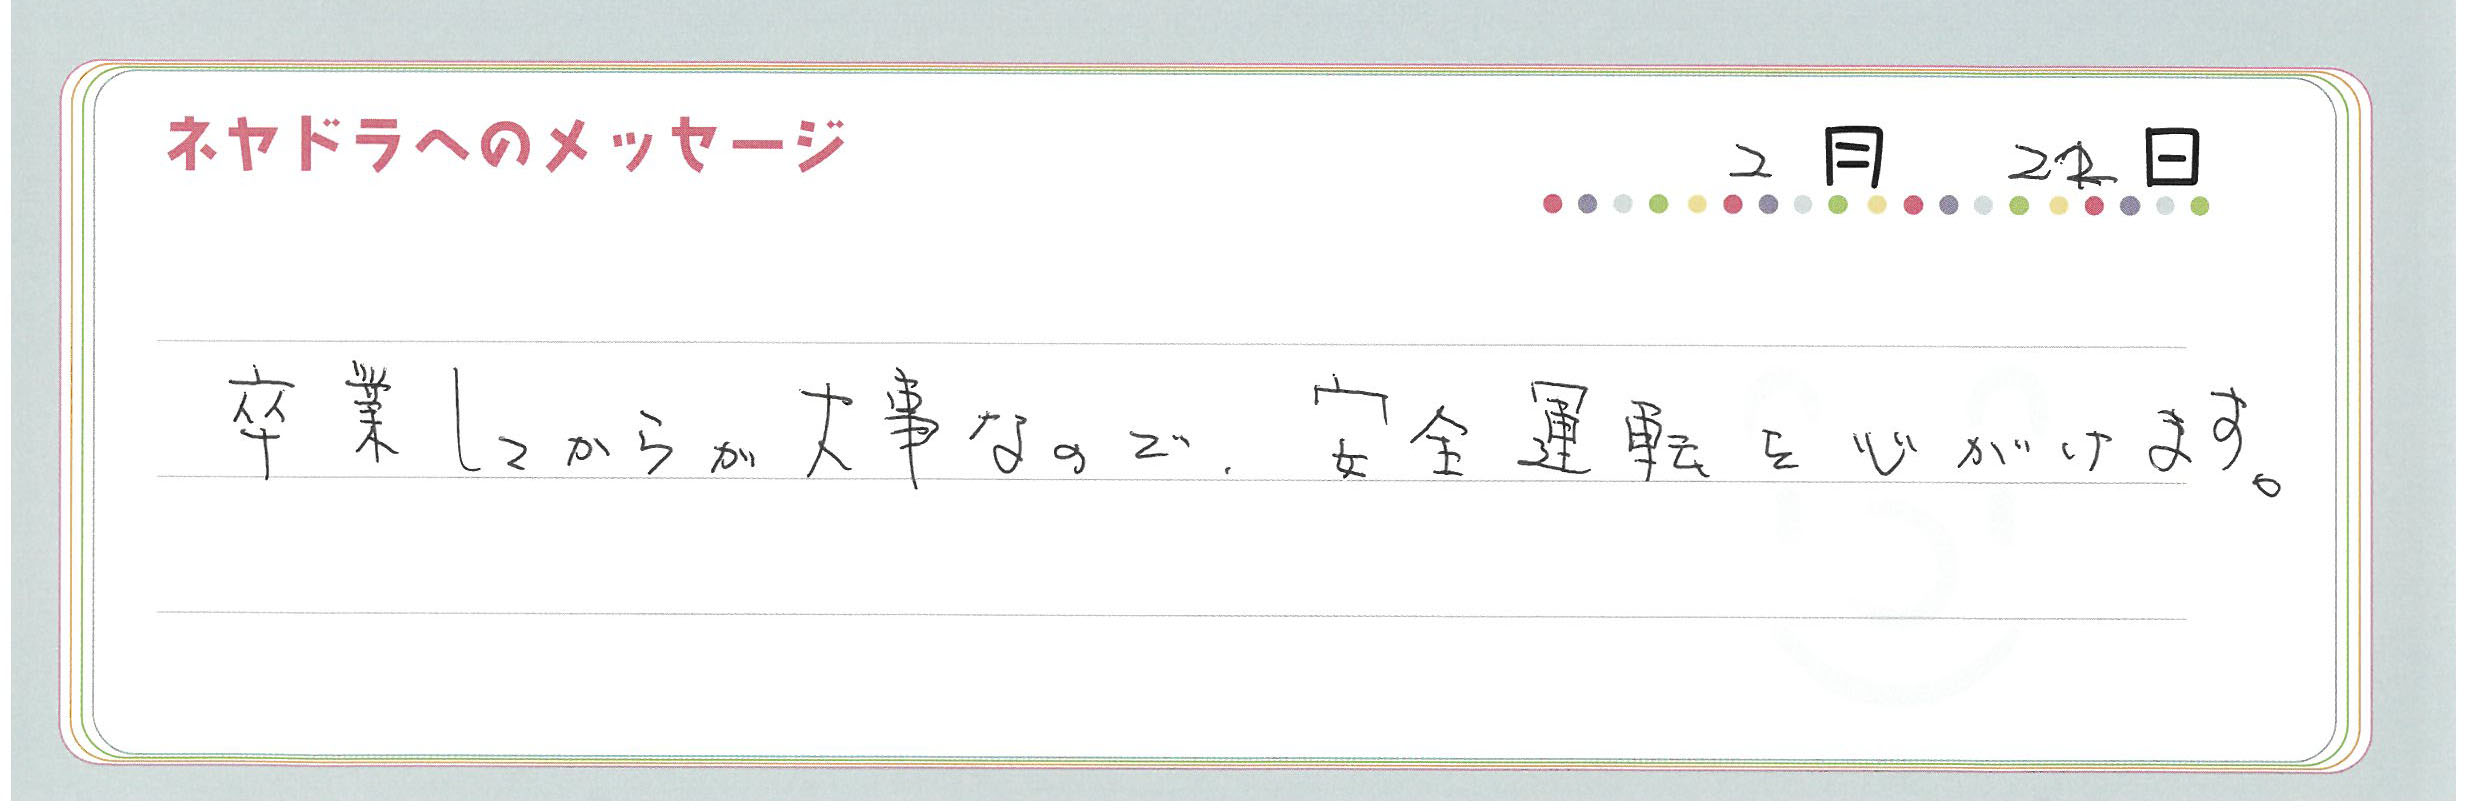 ネヤドラへのメッセージ
2月 22日
卒業してからが大事なので、安全運転を心がけます。